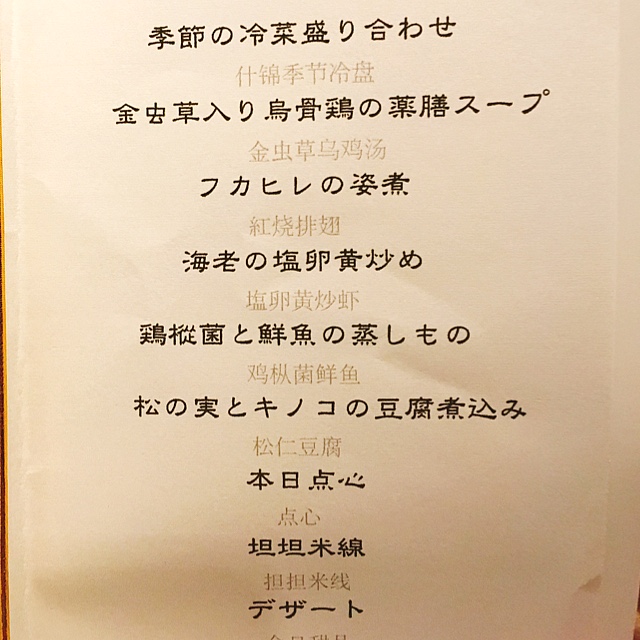 季節の冷菜盛り合わせ
什锦季节冷盘
金虫草入り烏骨鶏の薬膳スープ
金虫草乌鸡汤
フカヒレの姿煮
紅烧排翅
海老の塩卵黄炒め
塩卵黄炒虾
鶏樅菌と鮮魚の蒸しもの
鸡枞菌鲜鱼
松の実とキノコの豆腐煮込み
松仁豆腐
本日点心
点心
坦坦米線
担担米线
デザート